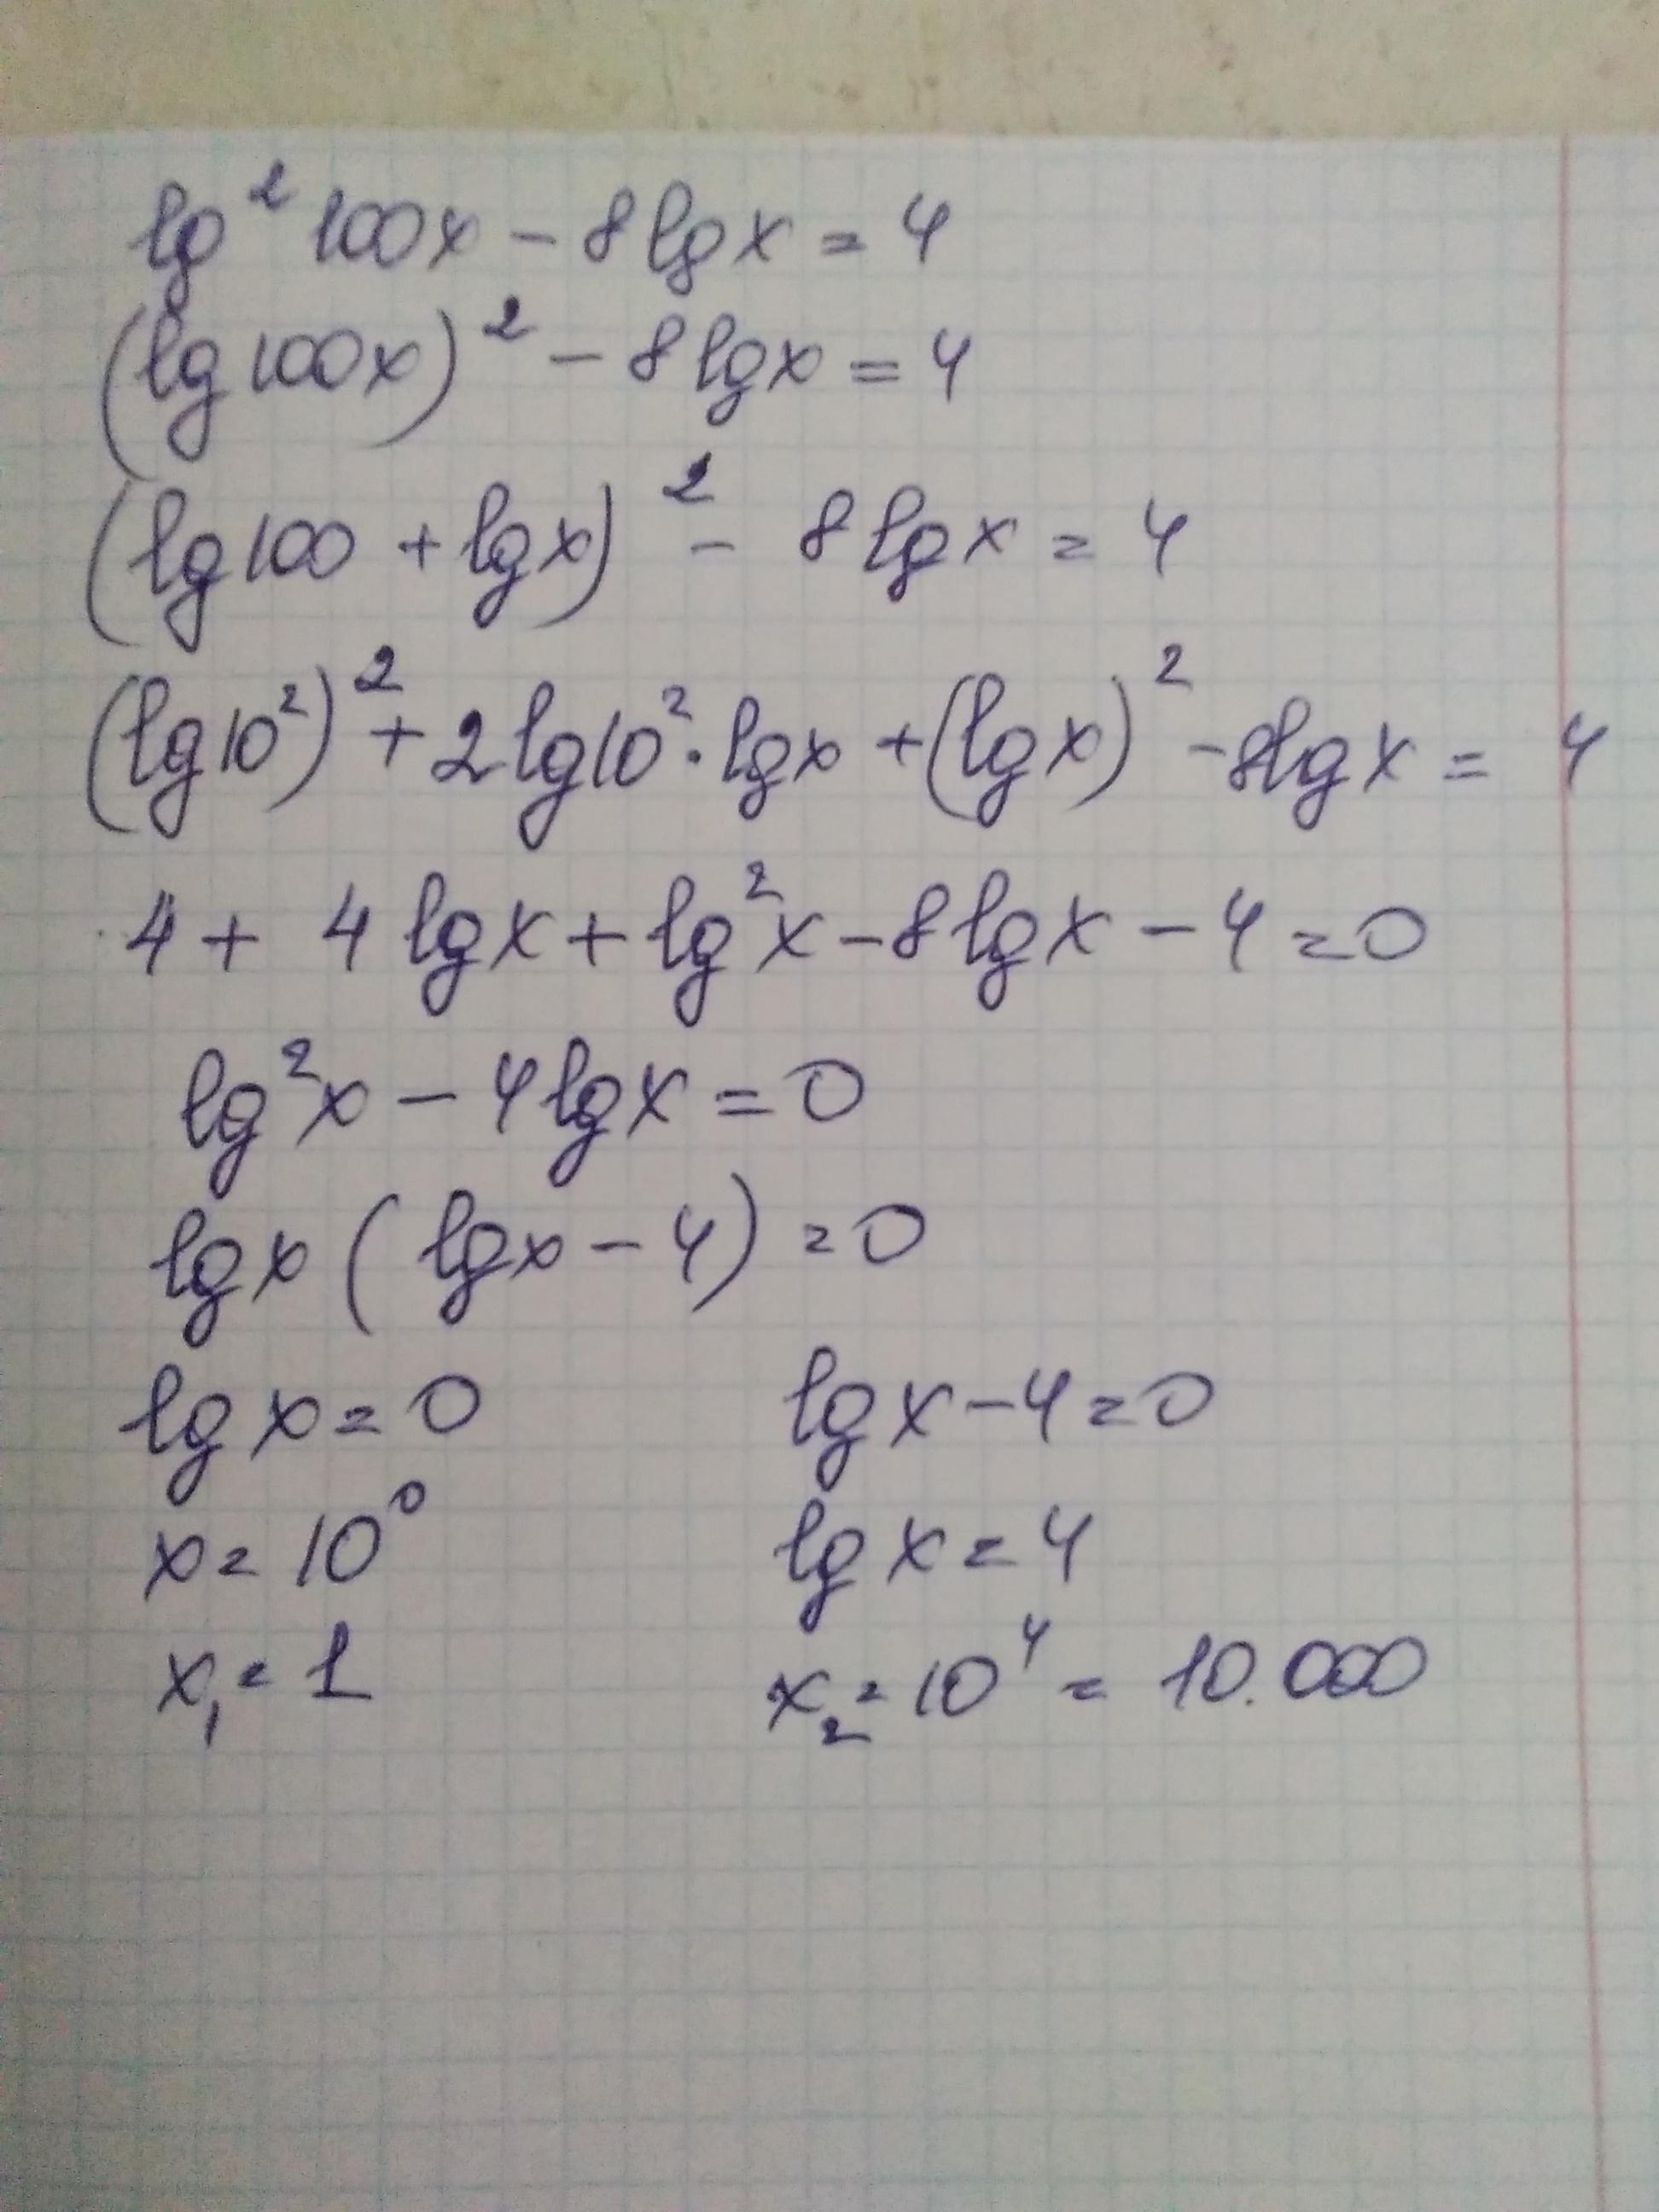 lg² 100x - 8lgx = 4
(lg100x)² - 8lgx = 4
(lg100 + lgx)² - 8lgx = 4
(lg10²)² + 2lg10² · lgx + (lgx)² - 8lgx = 4
4 + 4lgx + lg²x - 8lgx - 4 = 0
lg²x - 4lgx = 0
lgx (lgx - 4) = 0
lgx = 0 lgx - 4 = 0
x = 10⁰ lgx = 4
x₁ = 1 x₂ = 10⁴ = 10.000